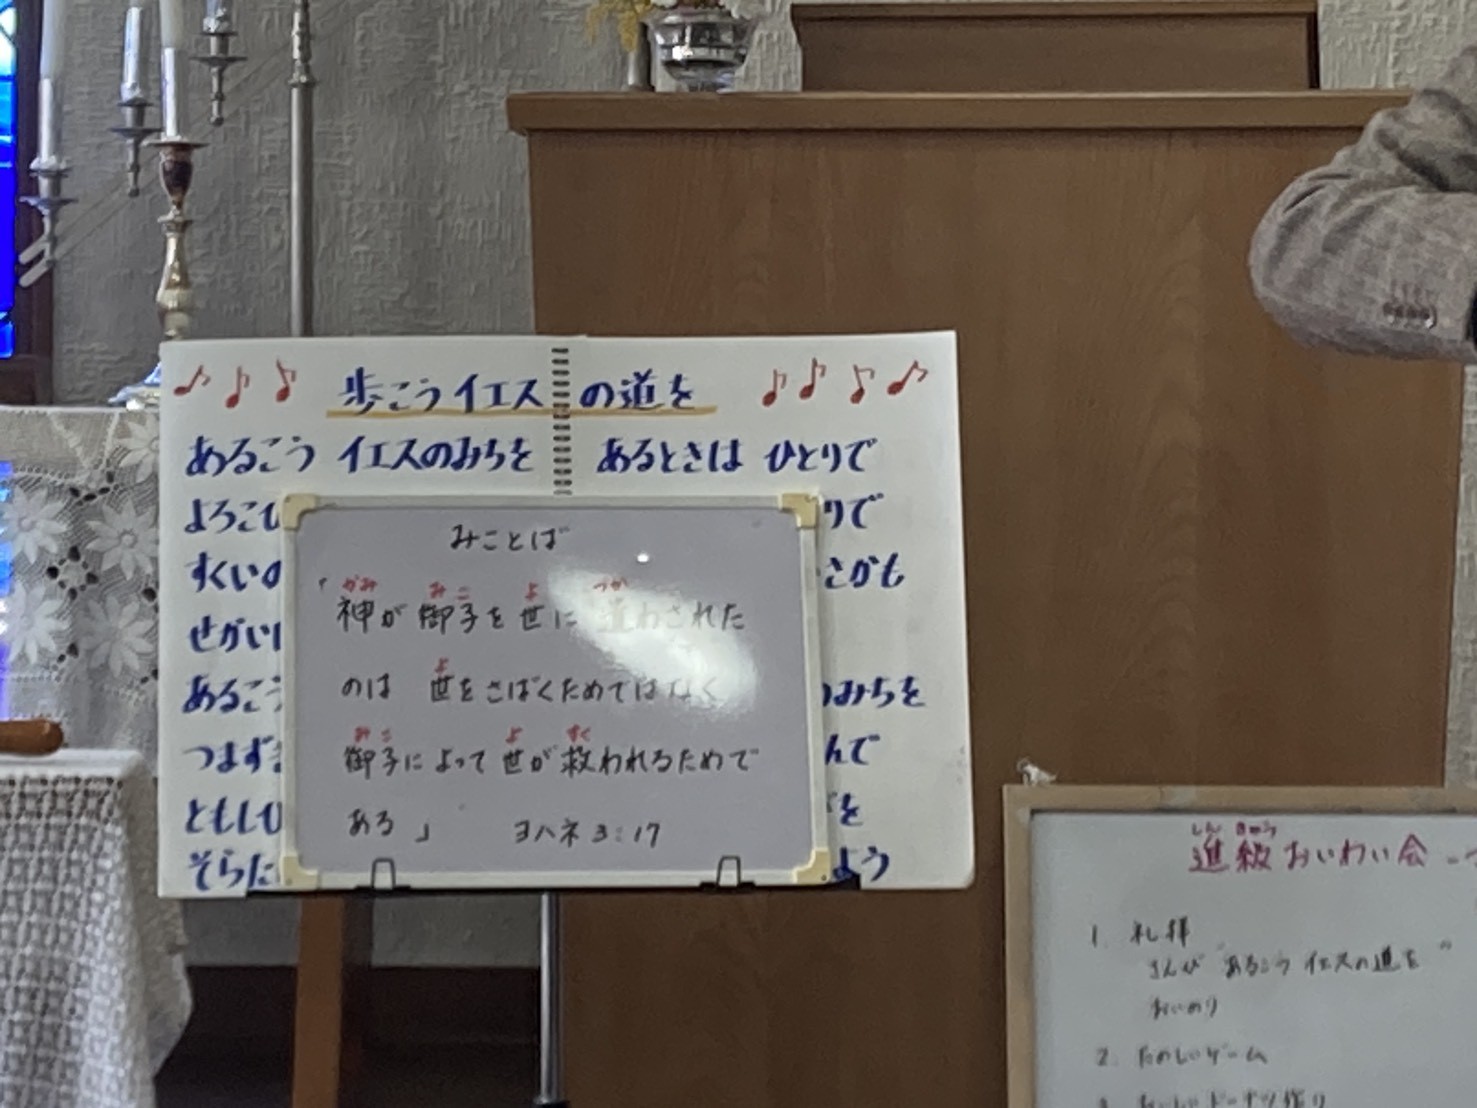 歩こうイエスの道を
あるこう イエスのみちを
よろこ
すくいの
せかい
あるこう
つまず
ともし
そらた
あるときは ひとりで
りで
さかも
みちを
んで
を
よう
みことば
かみ みこ よ つか
「神が御子を世に遣わされた
よ
のは 世をさばくためではなく
みこ よ すく
御子によって世が救われるためで
ある」 ヨハネ3:17
しん きゅう
進級おいわい会
1. 礼拝
さんび"あるこうイエスの道を"
おいのり
2. たのしいゲーム
ドーナツ作り